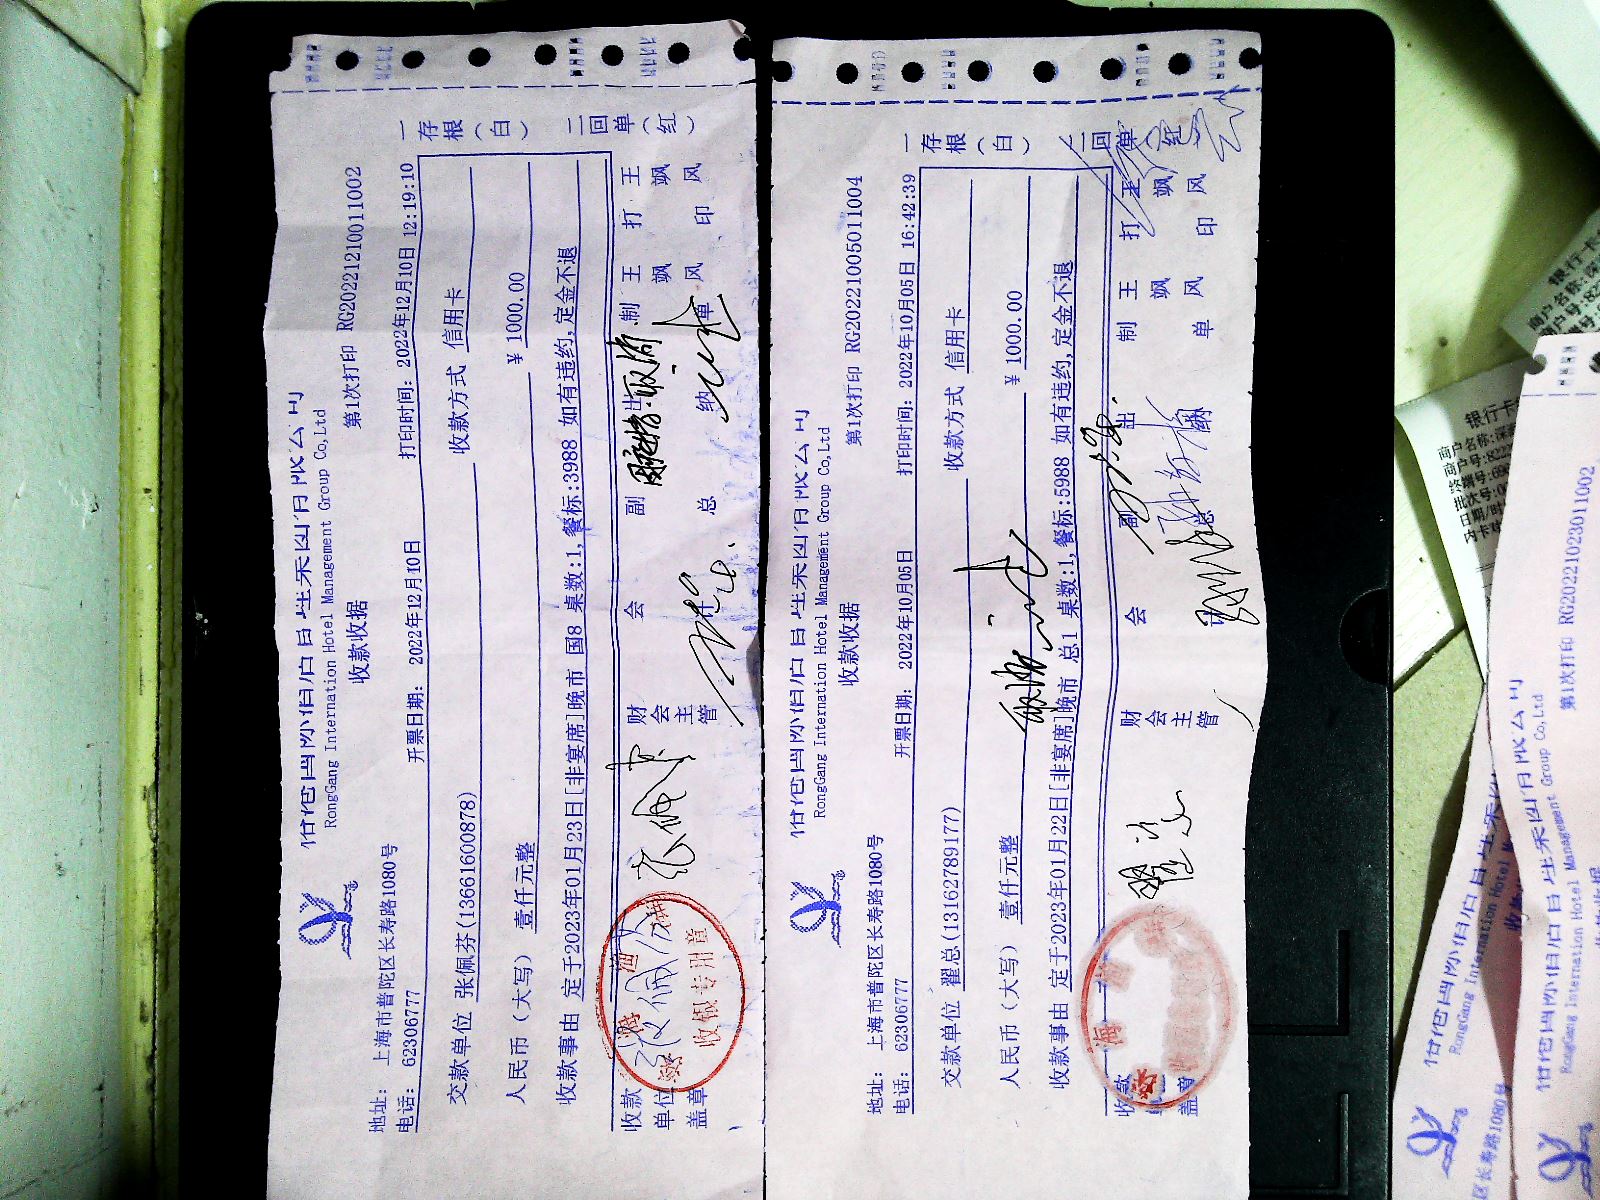 RongGang Internation Hotel Management Group Co,Ltd
收款收据
第1次打印 RG20221210011002
地址: 上海市普陀区长寿路1080号
电话: 62306777
开票日期: 2022年12月10日
打印时间: 2022年12月10日 12:19:10
交款单位 张佩芬(13661600878)
收款方式 信用卡
人民币(大写) 壹仟元整
¥ 1000.00
收款事由 定于2023年01月23日[非宴席]晚市 国8 桌数:1,餐标:3988 如有违约,定金不退
一存根(白) 二回单(红)
收款单位盖章
财会主管
会
副总
出纳
制单 王飒风
打印 王飒风
收银专用章
RongGang Internation Hotel Management Group Co,Ltd
收款收据
第1次打印 RG20221005011004
地址: 上海市普陀区长寿路1080号
电话: 62306777
开票日期: 2022年10月05日
打印时间: 2022年10月05日 16:42:39
交款单位 翟总(13162789177)
收款方式 信用卡
人民币(大写) 壹仟元整
¥ 1000.00
收款事由 定于2023年01月22日[非宴席]晚市 总1 桌数:1,餐标:5988 如有违约,定金不退
一存根(白) 二回单(红)
收款
盖
财会主管
会
副总
出
制单 王飒风
打印 王飒风
第1次打印 RG20221023011002
RongGang Internation Hotel Management Group Co,Ltd
RongGang Internation Hotel
区长寿路1080号
银行卡
商户名称:深
商户号:822
批次号:0
日期/时